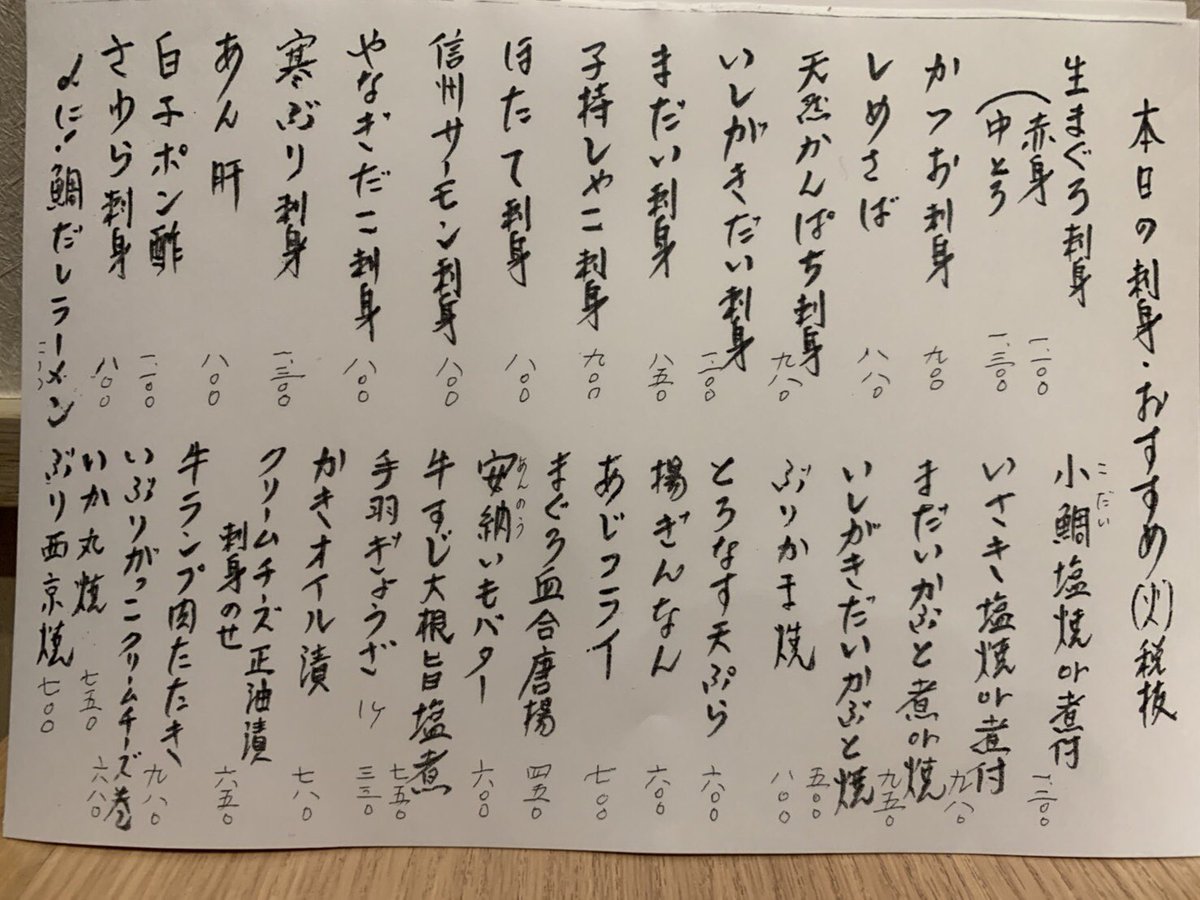 本日の刺身・おすすめ(火)税抜
生まぐろ刺身
赤身 一、一〇〇
中とろ 一、三〇〇
かつお刺身 九〇〇
しめさば 八八〇
天然かんぱち刺身 九八〇
いしがきだい刺身 一、一〇〇
まだい刺身 八五〇
子持しゃこ刺身 九〇〇
ほたて刺身 八〇〇
信州サーモン刺身 八〇〇
やなぎだこ刺身 八〇〇
寒ぶり刺身 一、三〇〇
あん肝 八〇〇
白子ポン酢 一、一〇〇
さわら刺身 八〇〇
〆に!鯛だしラーメン
小鯛塩焼or煮付 一、二〇〇
こだい
いさき塩焼or煮付 九八〇
まだいかぶと煮or焼 九五〇
いしがきだいかぶと焼 五〇〇
ぶりかま焼 八〇〇
とろなす天ぷら 六〇〇
揚ぎんなん 六〇〇
あじフライ 七〇〇
まぐろ血合唐揚 四五〇
安納いもバター 六〇〇
あんのう
牛すじ大根旨塩煮 七五〇
手羽ぎょうざ 1ケ 三三〇
かきオイル漬 七八〇
クリームチーズ正油漬
刺身のせ 六五〇
牛ランプ肉たたき 九八〇
いぶりがっこクリームチーズ巻 六八〇
いか丸焼 七五〇
ぶり西京焼 七〇〇